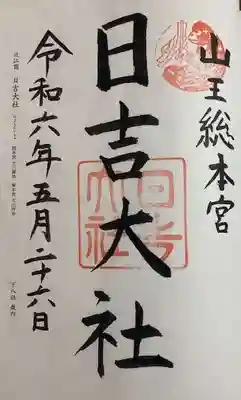 山王総本宮
日吉大社
令和六年五月二十六日
近江國 日吉大社
日吉大社